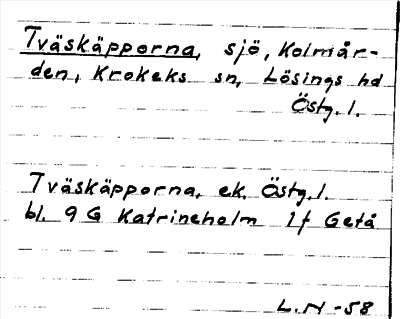 Tväskäpporna, sjö, Kolmår-
den, Krokeks sn, Lösings hd
Östg. l.
Tväskäpporna, ek. Östg. l.
bl. 9 G Katrineholm 1f Getå
L. N -58